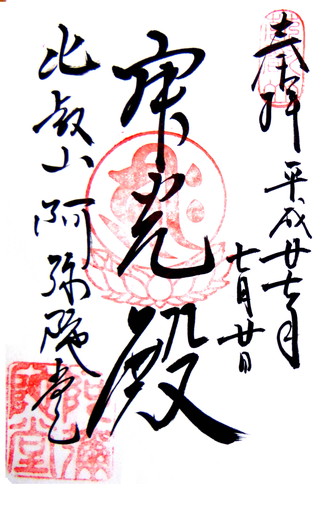 奉拝
平成廿七年
七月廿日
寂光殿
比叡山 阿弥陀堂
阿彌陀堂